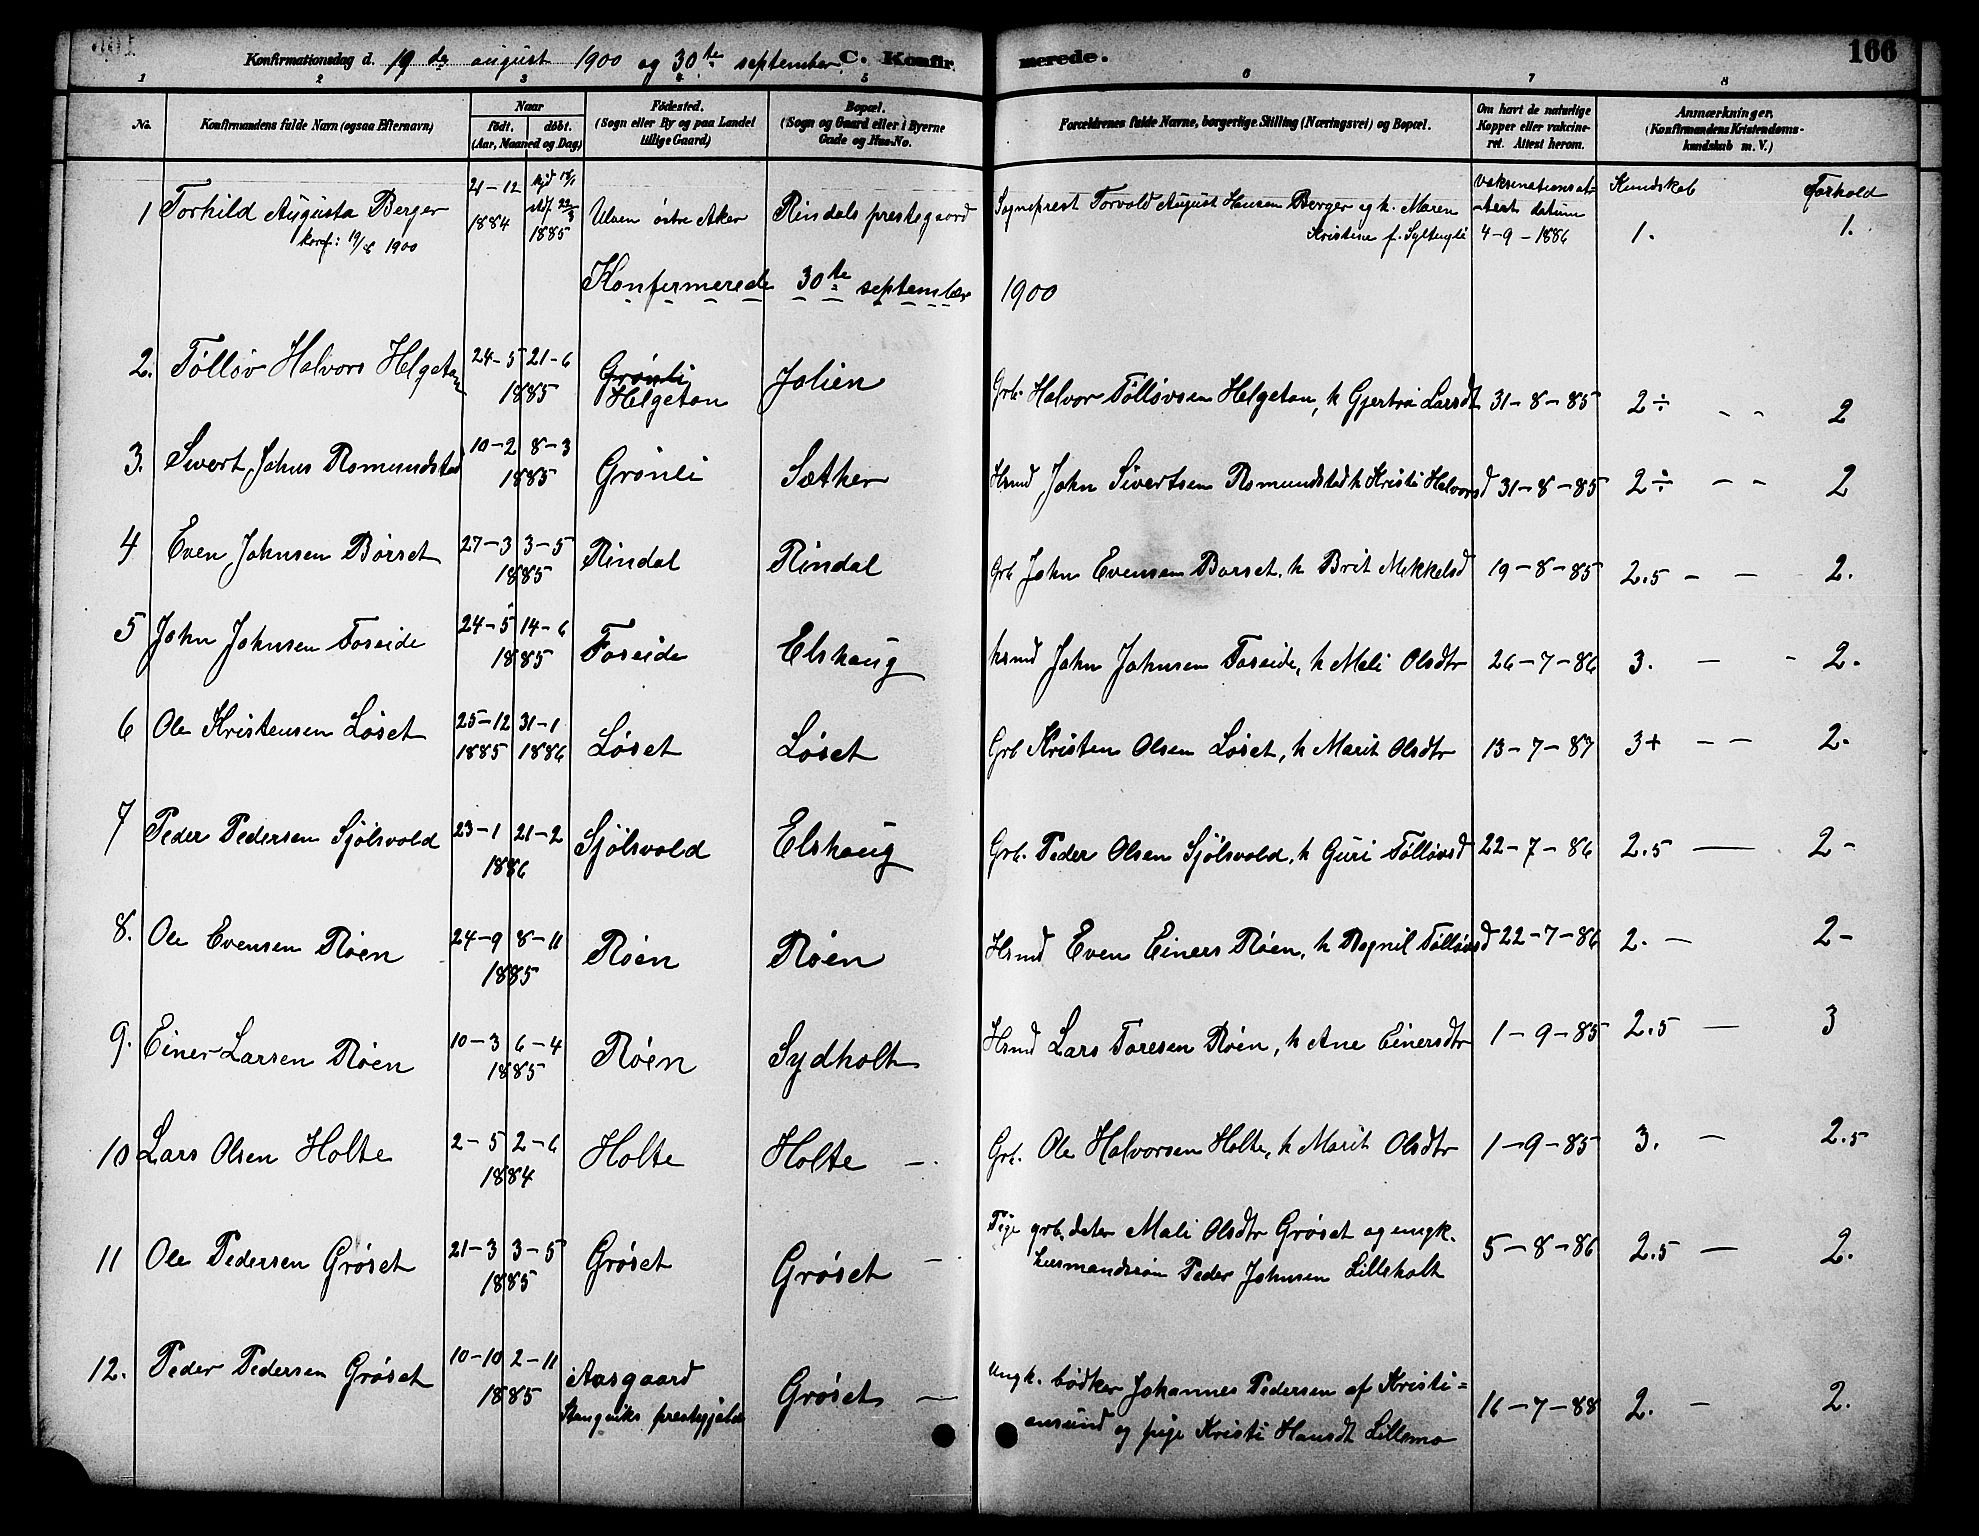 Konfirmationsdag d. 19de august 1900 og 30te september. C. Konfirmerede. 166
1 2 3 4 5 6 7 8
No. Konfirmandens fulde Navn (ogsaa Efternavn) Naar født. døbt. (Aar, Maaned og Dag) Fødested. (Sogn eller By og paa Landet tillige Gaard) Bopæl. (Sogn og Gaard eller i Byerne Gade og Hus-No. Forældrenes fulde Navne, borgerlige Stilling (Næringsvei) og Bopæl. Om havt de naturlige Kopper eller vakcineret. Attest herom. Anmærkninger. (Konfirmandens Kristendomskundskab m. V.)
Kundskab Forhold
1 Torhild Augusta Berger 21-12 1884 1885 Ulven østre Aker Rindals prestegaard Sogneprest Torvald August Hansen Berger og h. Maren Kristine f. vaksinationsattest datum 4-9-1886 1. 1.
konf: 19/8 1900
Konfermerede 30te september 1900
2. Tølløv Halvors Helgetan 24-5 21-6 1885 Grønli Helgetan Jolien Grb. Halvor Tølløvsen Helgetan, h Gjertrú Larsdt 31-8-85 2÷ - - 2
3. Sivert Johns Romundstad 10-2 8-3 1885 Grønli Sæther Hsmd John Sivertsen Romundstad h Kristi Halvorsd 31-8-85 2÷ - - 2
4 Even Johnsen Børset 27-3 3-5 1885 Rindal Rindal Grb John Evensen Børset. h Brit Mikkelsd 19-8-85 2.5 - - - 2.
5 John Johnsen Foseide 24-5 14-6 1885 Foseide Elshaug hsmd John Johnsen Foseide, h Mali Olsdtr 26-7-86 3. - - 2.
6 Ole Kristensen Løset 25-12 1885 31-1 1886 Løset Løset Grb Kristen Olsen Løset, h Marit Olsdtr 13-7-87 3+ - - 2.
7 Peder Pedersen Sjølsvold 23-1 21-2 1886 Sjølsvold Elshaug Grb. Peder Olsen Sjølsvold, h Guri Tølløvsd 22-7-86 2.5 - 2-
8. Ole Evensen Røen 24-9 8-11 1885 Røen Røen Hsmd Even Einers Røen, h Ragnil Tølløvsd 22-7-86 2. - 2-
9. Einer Larsen Røen 10-3 6-4 1885 Røen Sydholt Hsmd Lars Toresen Røen, h Ane Einersdtr 1-9-85 2.5 - 3
10 Lars Olsen Holte 2-5 2-6 1884 Holte Holte -. Grb. Ole Halvorsen Holte, h Marit Olsdtr 1-9-85 3. - 2.5
11 Ole Pedersen Grøset 21-3 3-5 1885 Grøset Grøset - Pige grb.dater Mali Olsdtr Grøset og ungk. husmandssøn Peder Johnsen Lilleholt 5-8-86 2.5 - 2.
12. Peder Pedersen Grøset 10-10 2-11 1885 Aasgaard Stangviks prestegjeld Grøset - Ungk. bødker Johannes Pedersen af Kristiansund og pige Kristi Hansdt Lillemo 16-7-88 2. - 2.